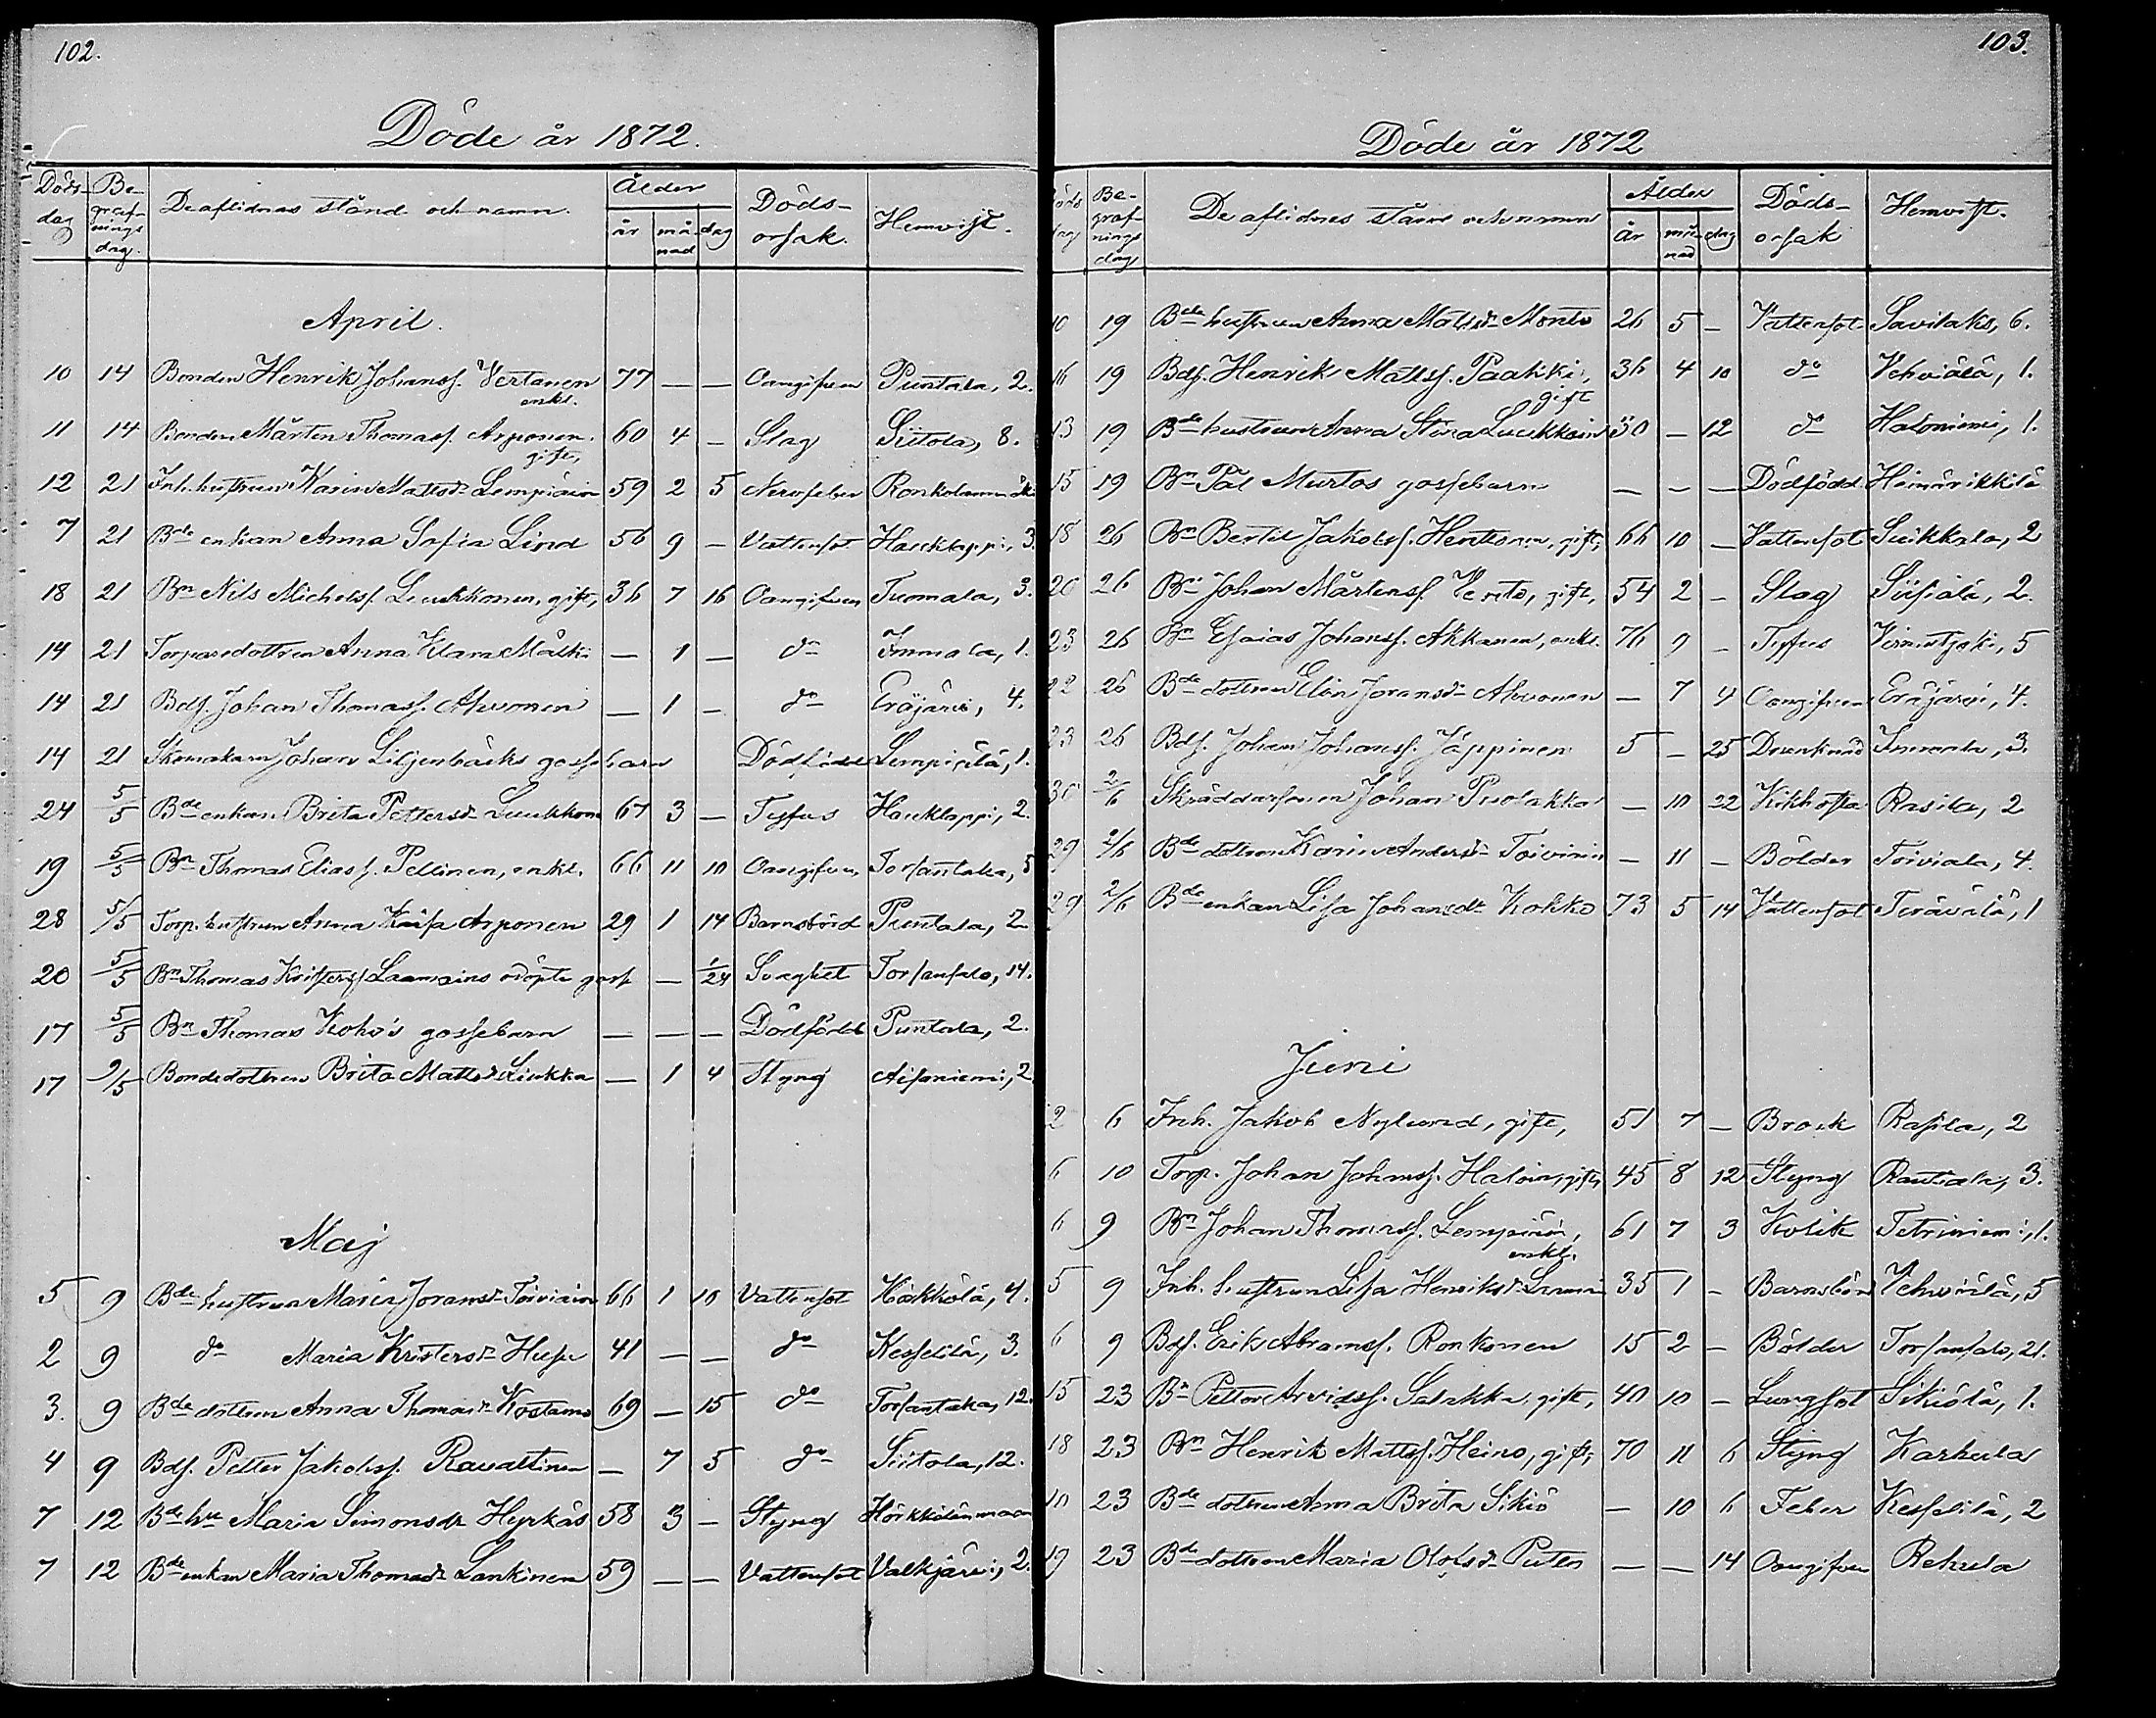 102.
Döde år 1872.
Döds- dag Be- graf- nings dag. De aflidnas stånd och namn. Ålder år må- nad dag Döds- orsak. Hemvist.
April.
10 14 Bonden Henrik Johanss. Vertanen enkl. 77 — — Oangifven Puntala, 2.
11 14 Bonden Mårten Thomass. Arponen. gift, 60 4 — Slag Siitola, 8.
12 21 Inh. hustrun Karin Mattsdr Lempiäin 59 2 5 Nervfeber
7 21 Bde enkan Anna Sofia Lind 56 9 — Vattensot Haukkappi, 3.
18 21 Bn Nils Michelss. Luukkonen, gift, 36 7 16 Oangifven Tuomala, 3.
14 21 Torparedottren Anna Klara Mäski — 1 — do Immala, 1.
14 21 Bdss. Johan Thomass. Ahvonen — 1 — do Eräjärvi, 4.
14 21 Skomakarn Johan Liljenbäcks gossebarn Dödfödd Lempiälä, 1.
24 5/5 Bde enkan Brita Pettersdr Luukkone 67 3 — Tyfus Haukkappi, 2.
19 5/5 Bn Thomas Eliass. Pellinen, enkl. 66 11 10 Oangifven Torsantaka, 5
28 5/5 Torp. hustrun Anna Kaisa Arponen 29 1 14 Barnsbörd Puntala, 2
20 5/5 Bn Thomas Kristerss. odöpte goss — 1/24 Svaghet Torsansalo, 14.
17 5/5 Bn Thomas Koho's gossebarn — — — Dödfödd Puntala, 2.
17 9/5 Bondedottren Brita Mattsdr Liukka — 1 4 Styng Aisaniemi, 2
Maj
5 9 Bde hustrun Maria Joransdr Toiviain 66 1 10 Vattensot Käkkölä, 4.
2 9 do Maria Kristersdr Husu 41 — — do Kesselilä, 3.
3. 9 Bde dottren Anna Thomasdr Kostamo 69 — 15 do Torsantaka, 12.
4 9 Bdss. Petter Jakobss. Ravattinen — 7 5 do Siitola, 12.
7 12 Bde hu Maria Simonsdr Hyrkäs 58 3 — Styng
7 12 Bde enkan Maria Thomasdr Lankinen 59 — — Vattensot Valkjärvi, 2.
103.
Döde år 1872
Döds dag Be- graf- nings dag De aflidnes stånd och namn Ålder år må- nad dag Döds- orsak Hemvist.
10 19 Bde hustrun Anna Mattsdr Monto 26 5 — Vattensot Savilaks, 6.
16 19 Bdss. Henrik Mattss. Paakki, gift 36 4 10 do Vehviälä, 1.
13 19 Bde hustrun Anna Stina Luukkain 30 — 12 do Haloniemi, 1.
15 19 Bn Pål Murtos gossebarn — — — Dödfödd Heinärikkilä
18 26 Bn Bertil Jakobss. Henttonen, gift, 66 10 — Vattensot Suikkala, 2
20 26 Bn Johan Mårtenss. Vento, gift, 54 2 — Slag Siisiälä, 2.
23 26 Bn Esaias Johanss. Akkanen, enkl. 76 9 — Tyfus Virmutjoki, 5
22 26 Bde dottren Elin Joransdr Ahvonen — 7 4 Oangifven Eräjärvi, 4.
23 26 Bdss. Johan Johanss. Jäppinen 5 — 25 Drunknad Immala, 3.
30 2/6 Skräddarsonen Johan Puolakka — 10 22 Kikhosta Rasila, 2
29 2/6 Bde dottren Karin Andersdr Toivinin — 11 — Bölder Toiviala, 4.
29 2/6 Bde enkan Lisa Johansdr Kokko 73 5 14 Vattensot Terävälä, 1
Juni
2 6 Inh. Jakob Nylund, gift, 51 7 — Brock Rasila, 2
6 10 Torp. Johan Johanss. Haloin, gift, 45 8 12 Styng Rautiala, 3.
6 9 Bn Johan Thomass. Lempiäin, enkl. 61 7 3 Kolik Tetriniemi, 1.
5 9 Inh. hustrun Lisa Henriksdr 35 1 — Barnsbörd Vehviälä, 5
6 9 Bdss. Erik Abramss. Ronkonen 15 2 — Bölder Torsansalo, 21.
15 23 Bn Petter Arvidss. Salakka, gift, 40 10 — Lungsot Sikiölä, 1.
18 23 Bn Henrik Mattss. Heino, gift, 70 11 6 Styng Karkula
10 23 Bde dottren Anna Brita Sikiö — 10 6 Feber Kesselilä, 2
19 23 Bde dottren Maria Olofsdr Puten — — 14 Oangifven Rekula